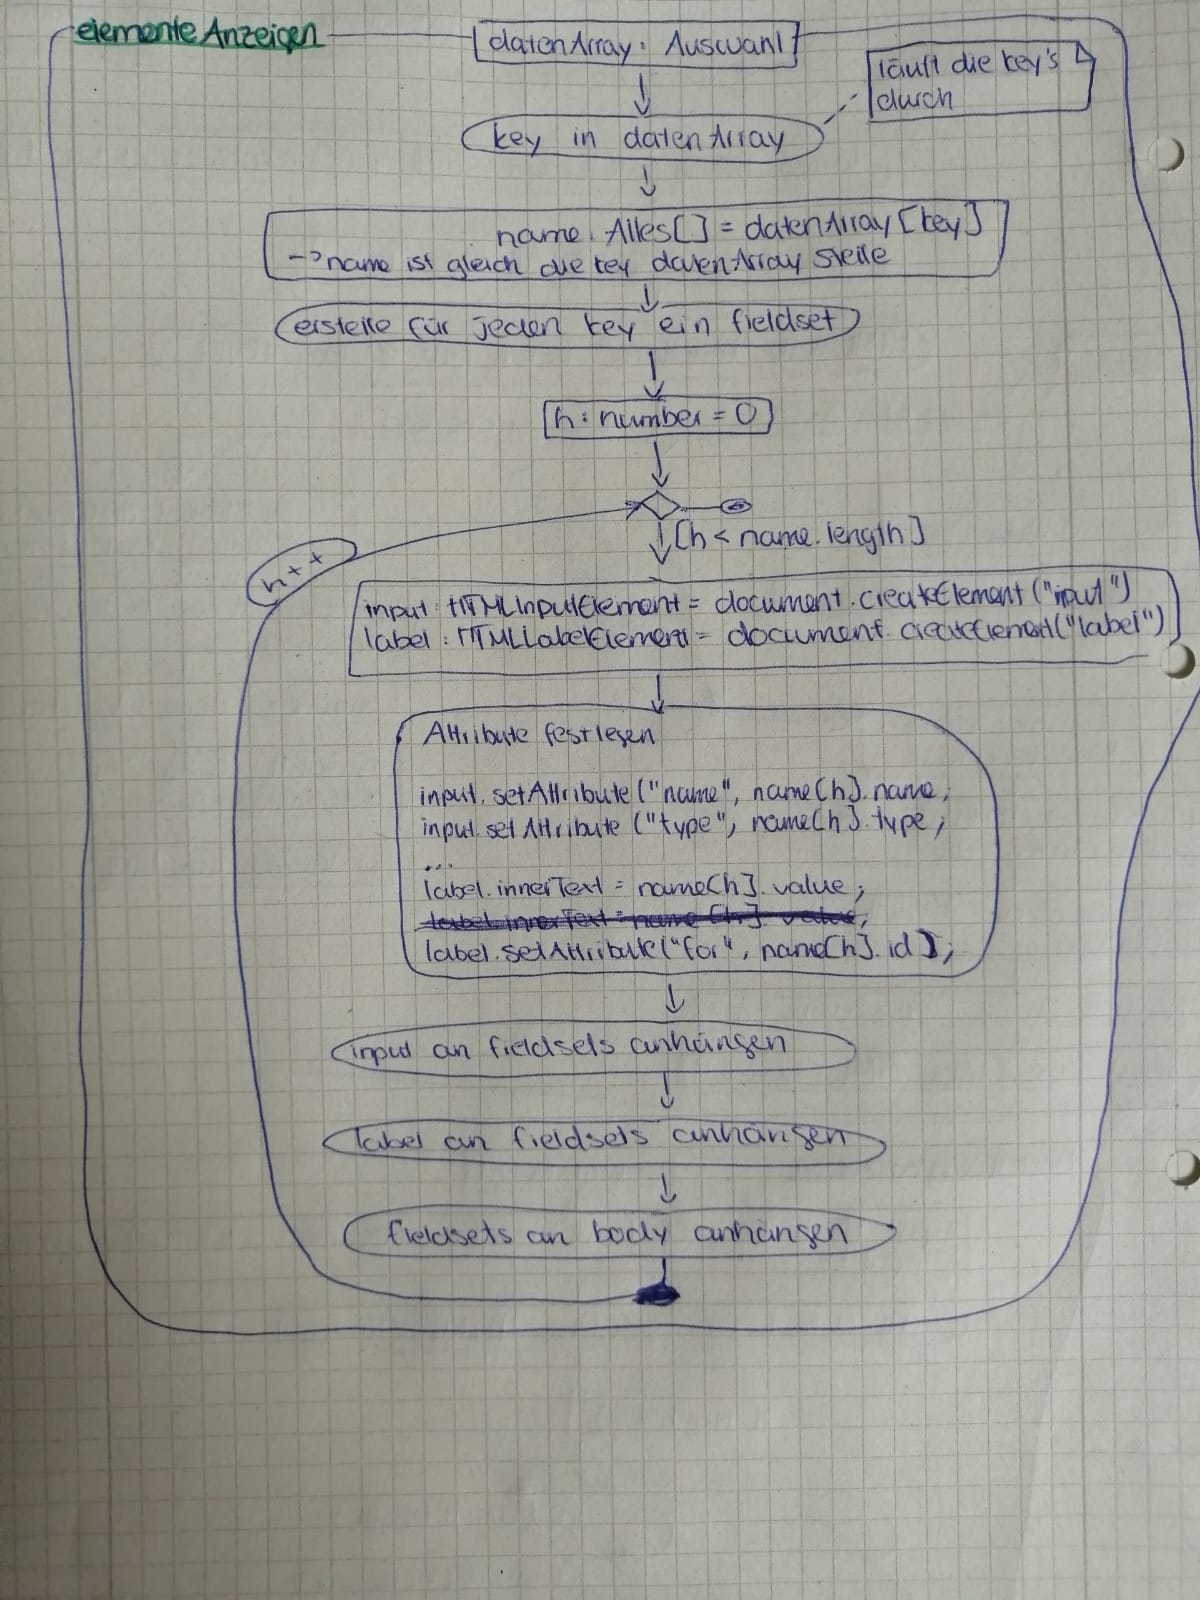 elementeAnzeigen
datenArray: Auswahl
läuft die key's
durch
key in datenArray
name: Alles[] = datenArray[key]
-> name ist gleich die key datenArray stelle
erstelle für jeden key ein fieldset
h: number = 0
[h < name.length]
h++
input: HTMLInputElement = document.createElement("input")
label: HTMLLabelElement = document.createElement("label")
Attribute festlegen
input.setAttribute("name", name[h].name;
input.setAttribute("type", name[h].type;
...
label.innerText = name[h].value;
label.innerText = name[h].value;
label.setAttribute("for", name[h].id);
input an fieldsets anhängen
label an fieldsets anhängen
fieldsets an body anhängen